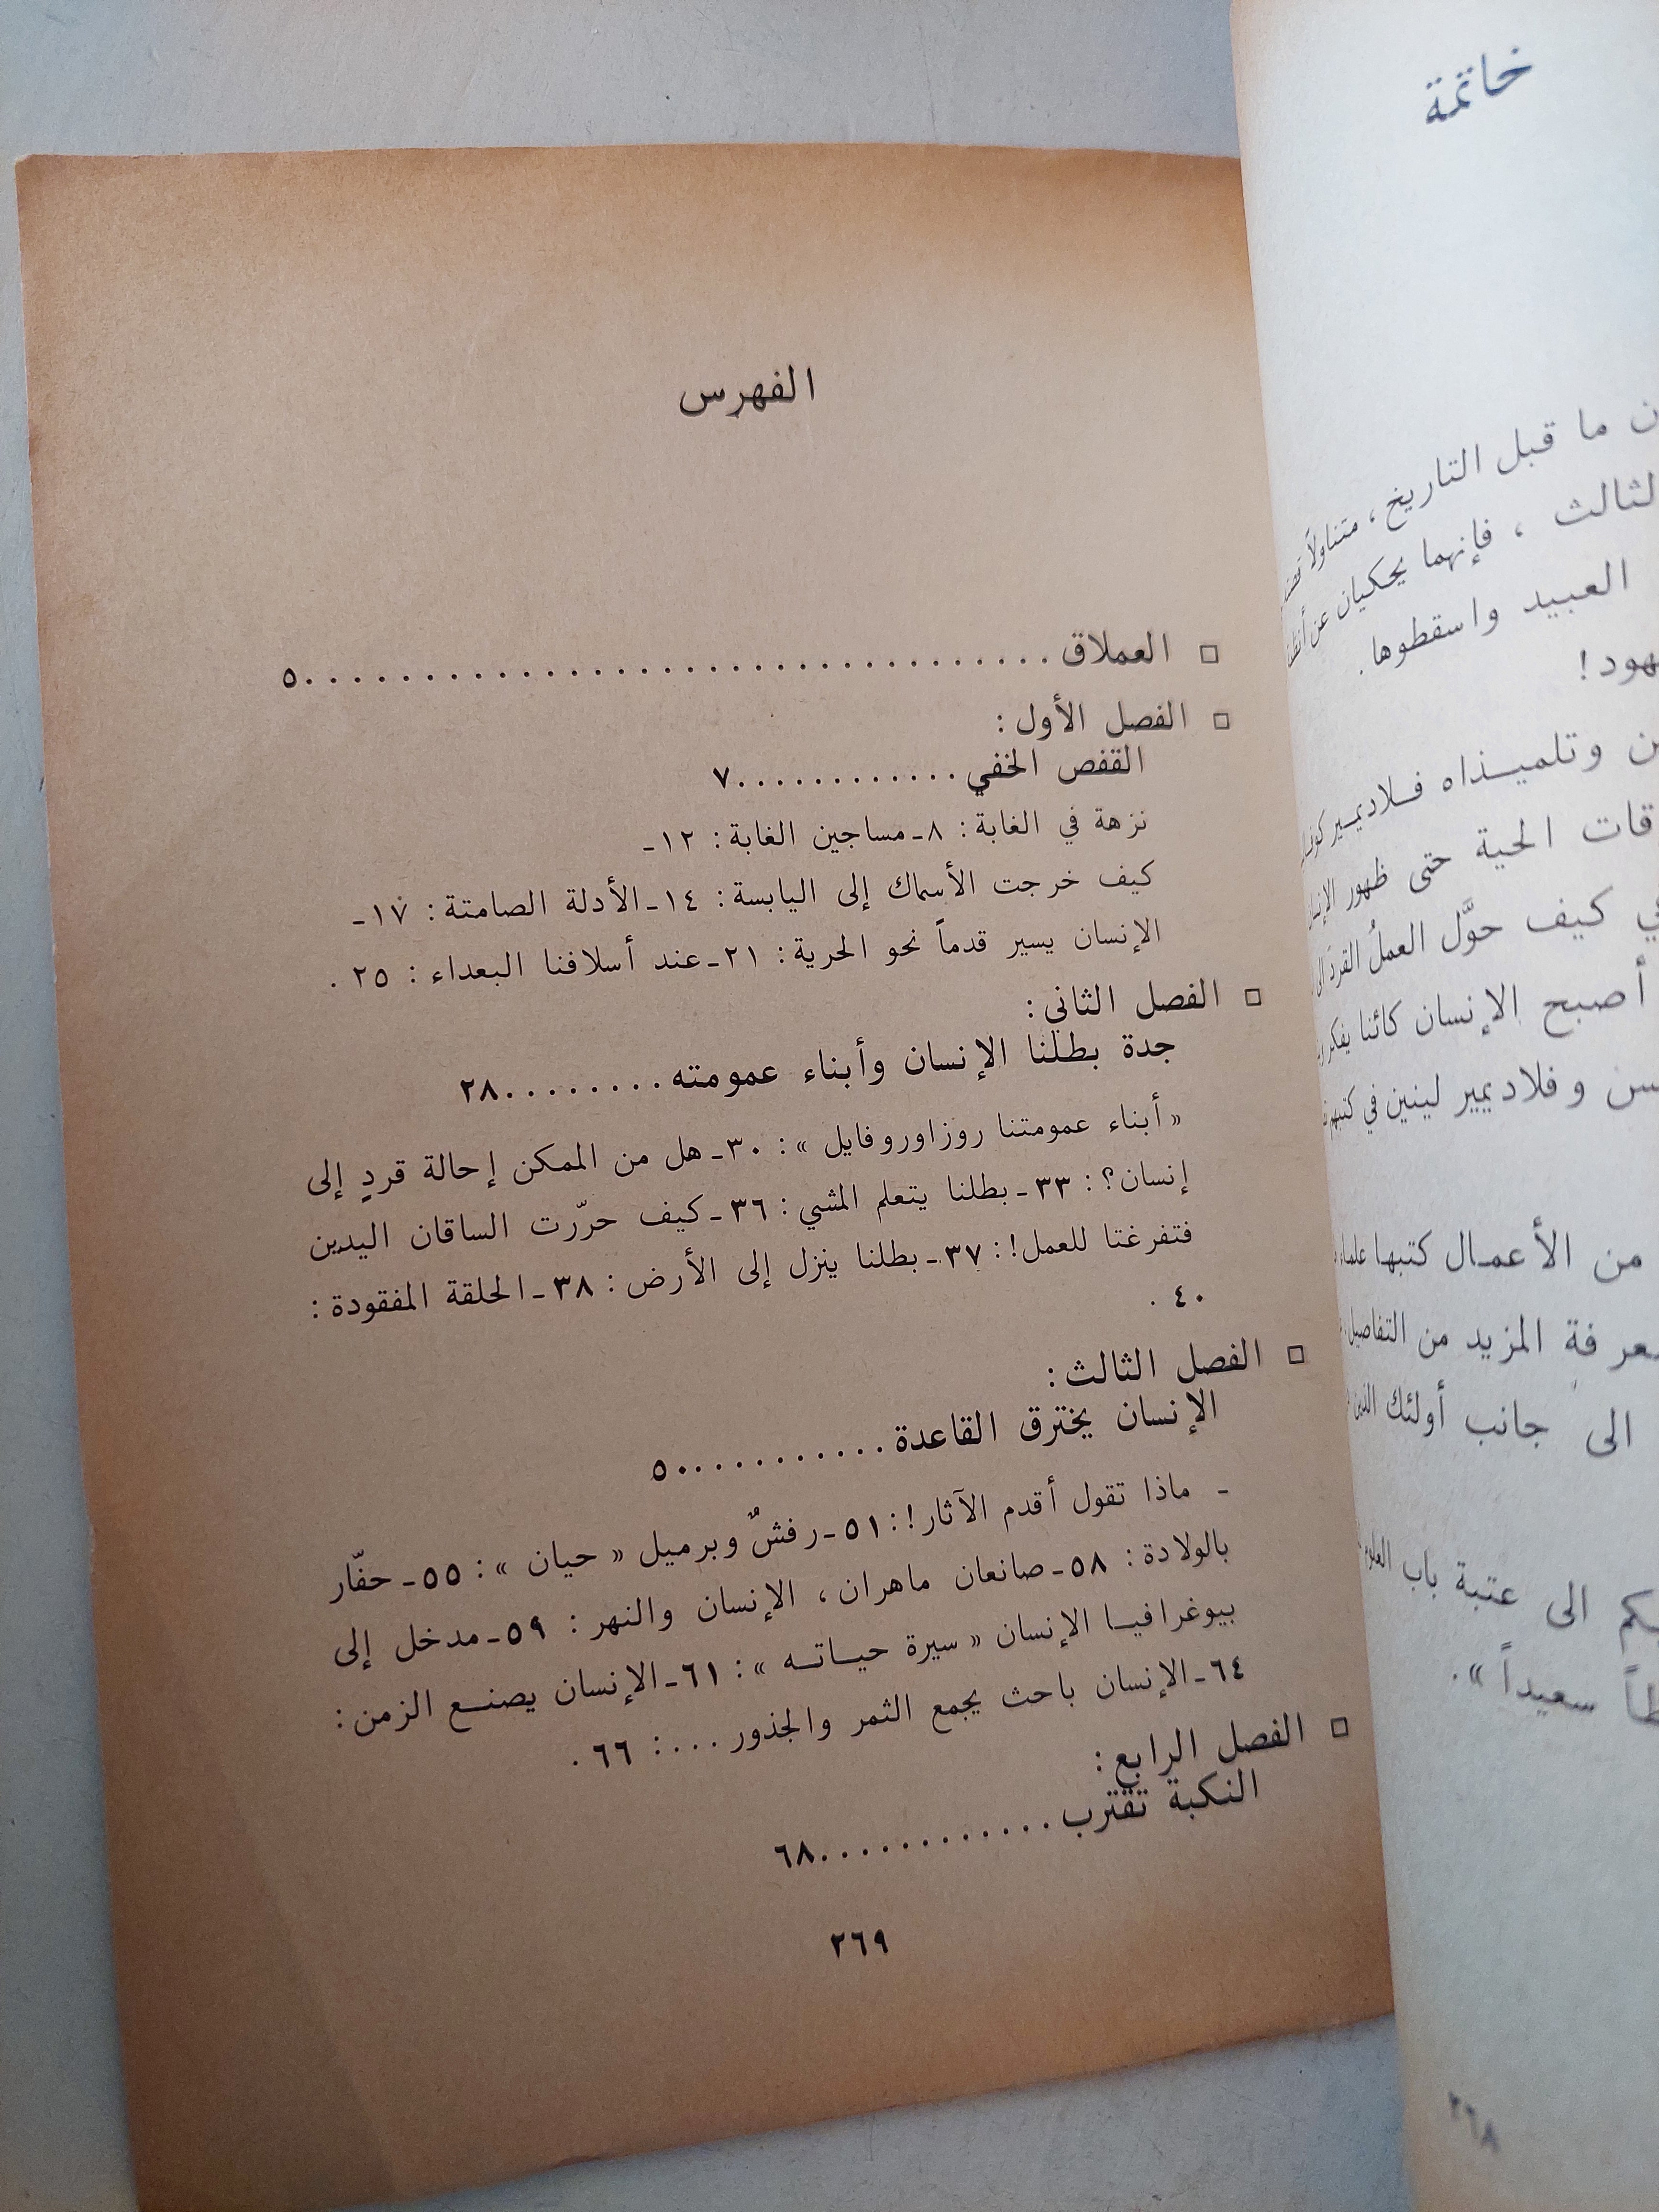 خاتمة
ن ما قبل التاريخ ، متناولاً
لثالث ، فإنهما يحكيان عن
العبيد واسقطوها .
هود !
ن وتلميذاه فلاديمير
قات الحية حتى ظهور
ي كيف حوَّل العملُ القردَ
أصبح الإنسان كائنا يفكر
سن وفلاديمير لينين في كتبهم
من الأعمال كتبها علماء
عرفة المزيد من التفاصيل
الى جانب أولئك الذين
كم الى عتبة باب العلوم
طاً سعيداً » .
٢٦٨
الفهرس
□ العملاق . . . . . . . . . . . . . . . . . . . . . . . . . . . . . . ٥
□ الفصل الأول :
القفص الخفي . . . . . . . . . . . . ٧
نزهة في الغابة : ٨ ـ مساجين الغابة : ١٢ ـ
كيف خرجت الأسماك إلى اليابسة : ١٤ ـ الأدلة الصامتة : ١٧ ـ
الإنسان يسير قدماً نحو الحرية : ٢١ ـ عند أسلافنا البعداء : ٢٥ .
□ الفصل الثاني :
جدة بطلنا الإنسان وأبناء عمومته . . . . . . . . ٢٨
« أبناء عمومتنا روزا وروفايل » : ٣٠ ـ هل من الممكن إحالة قردٍ إلى
إنسان؟ : ٣٣ ـ بطلنا يتعلم المشي : ٣٦ ـ كيف حرّرت الساقان اليدين
فتفرغتا للعمل! : ٣٧ ـ بطلنا ينزل إلى الأرض : ٣٨ ـ الحلقة المفقودة :
٤٠ .
□ الفصل الثالث :
الإنسان يخترق القاعدة . . . . . . . . . . ٥٠
ـ ماذا تقول أقدم الآثار! : ٥١ ـ رفشٌ وبرميل « حيان » : ٥٥ ـ حفّار
بالولادة : ٥٨ ـ صانعان ماهران ، الإنسان والنهر : ٥٩ ـ مدخل إلى
بيوغرافيا الإنسان « سيرة حياته » : ٦١ ـ الإنسان يصنع الزمن :
٦٤ ـ الإنسان باحث يجمع الثمر والجذور . . . : ٦٦ .
□ الفصل الرابع :
النكبة تقترب . . . . . . . . . . . . ٦٨
٢٦٩